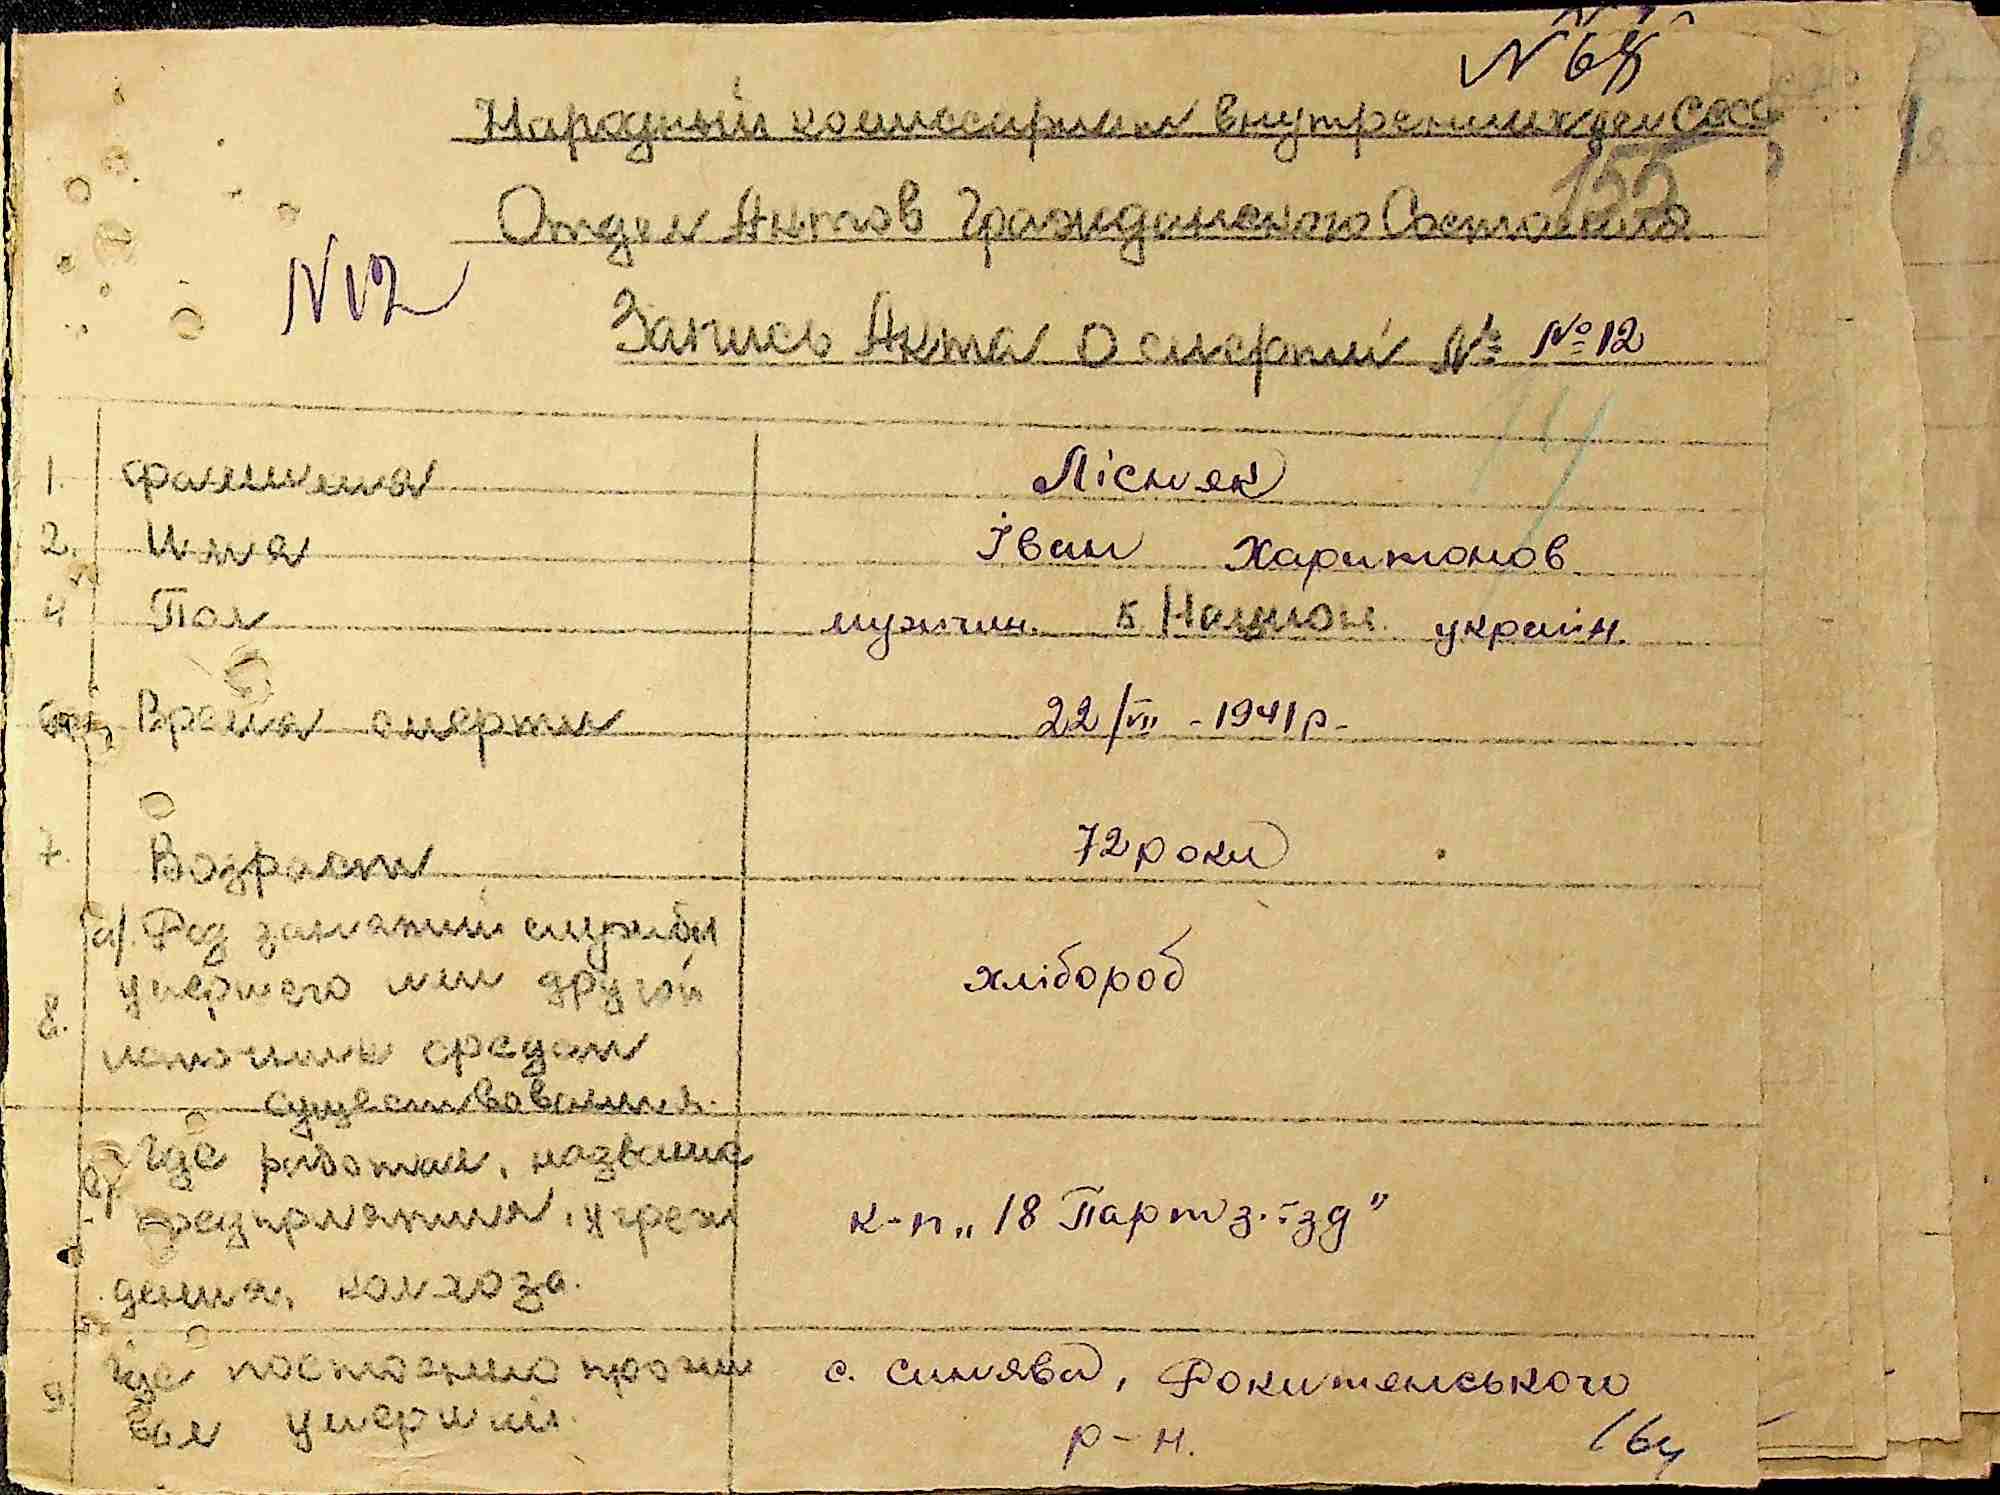 Народный комиссариат внутренних дел СССР
155
Отдел Актов Гражданского Состояния
N12
Запись Акта о смерти № №12
1. фамилия Лісняк
2. Имя Іван Харитонов
4 Пол мужчин. 5 Национ. україн.
Время смерти 22/VII - 1941 р-
7. Возраст 72 роки
а/. Род занятий службы
умершего или другой хлібороб
8.
источник средств
существования.
Где работал, название
предприятия, учреж к-п „18 Партз.їзд"
дения, колхоза.
9. Где постоянно прожи с. Синява, Рокитянського
вал умерший. р-н.
164